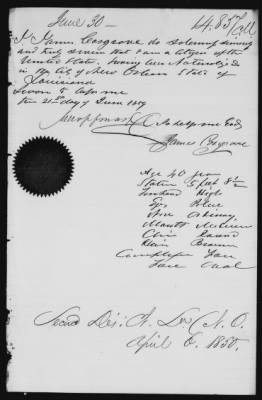 June 30 —
I James Cosgrove do solemnly swear
and truly swear that I am a citizen of the
United States, having been Naturalized
in the City of New Orleans State of
Louisiana
Sworn to before me
this 21st day of June 1859
So help me God,
James Cosgrove
Age 40 years
Stature 5 feet 8 in
Forehead High
Eyes Blue
Nose Ordinary
Mouth Medium
Chin Round
Hair Brown
Complexion Fair
Face Oval
Second Dis. Ct. La. N.O.
April 6. 1850.